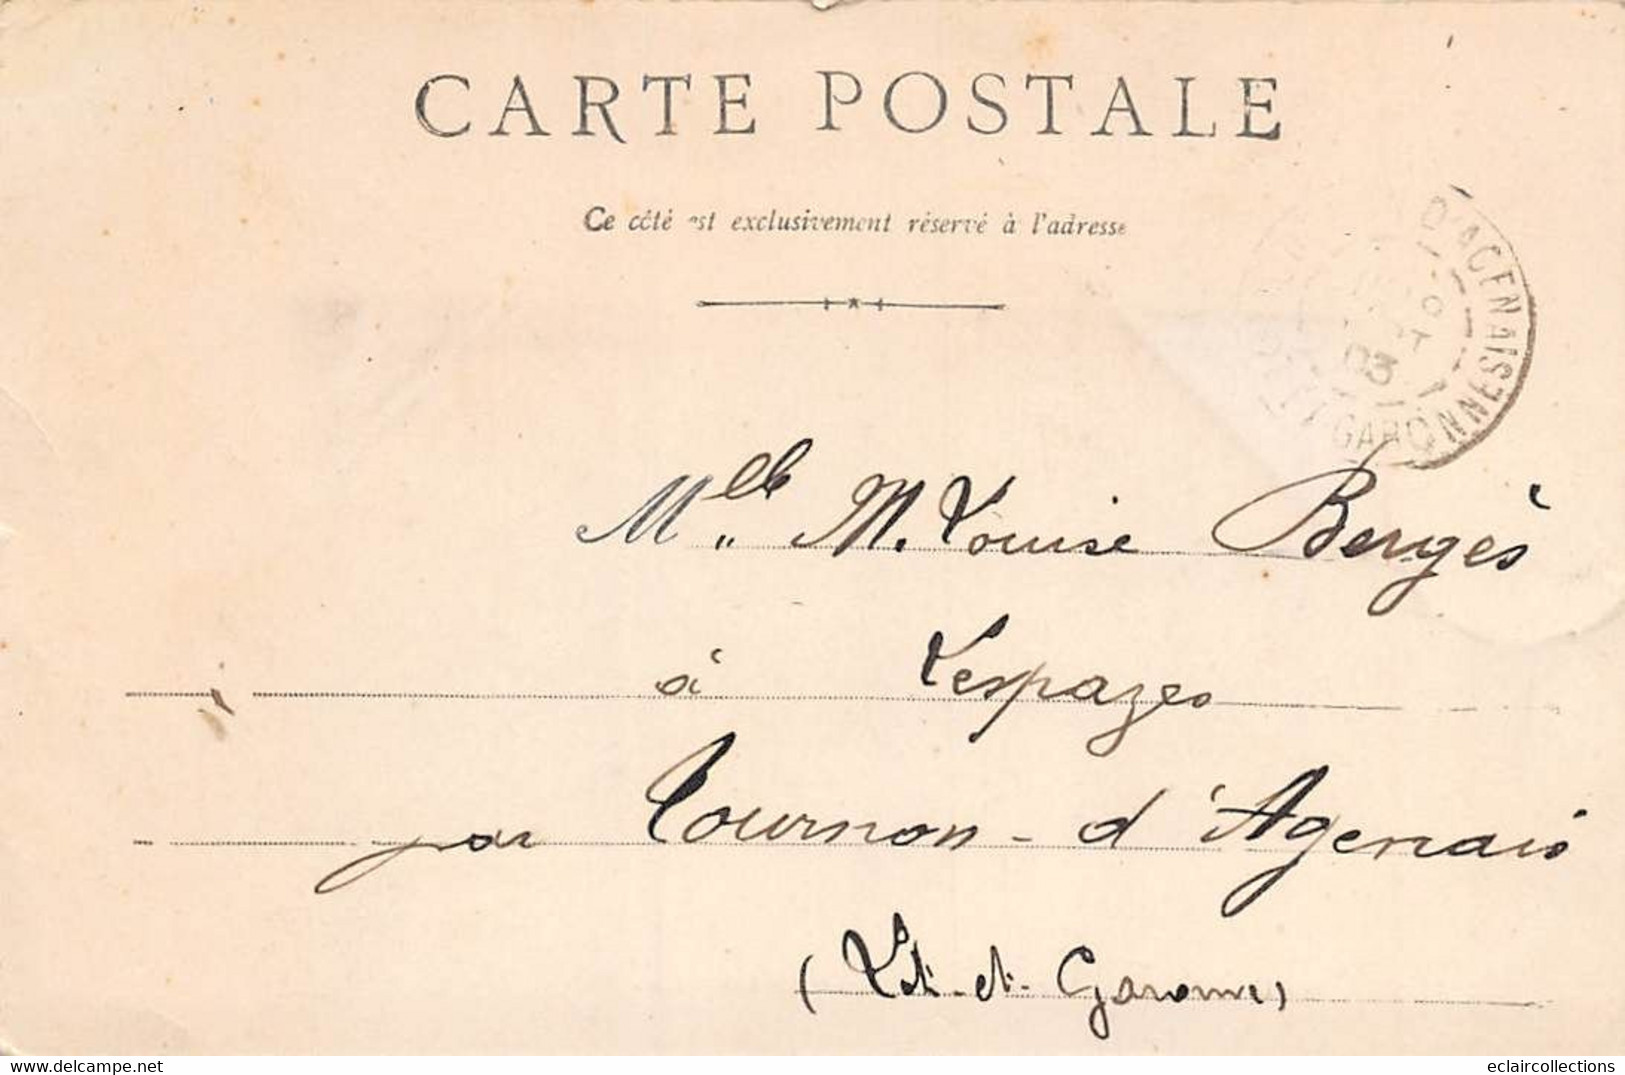 CARTE POSTALE
Ce côté est exclusivement réservé à l'adresse
D'AGENAIS
ET GARONNE
03
Mlle M. Louise Bergès
à Lespazes
par Tournon-d'Agenais
(Lot-et-Garonne)
eclaircollections